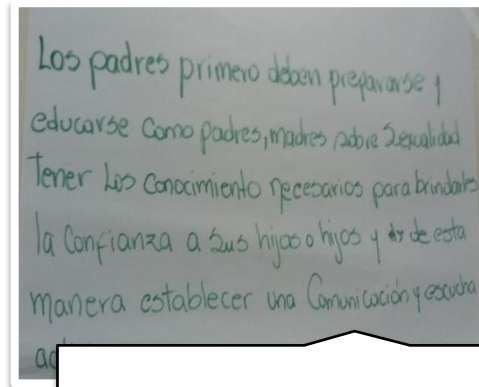 Los padres primero deben prepararse y
educarse como padres, madres sobre Sexualidad
Tener Los Conocimiento necesarios para brindarles
la Confianza a Sus hijas o hijos y de esta
manera establecer una Comunicación y escucha